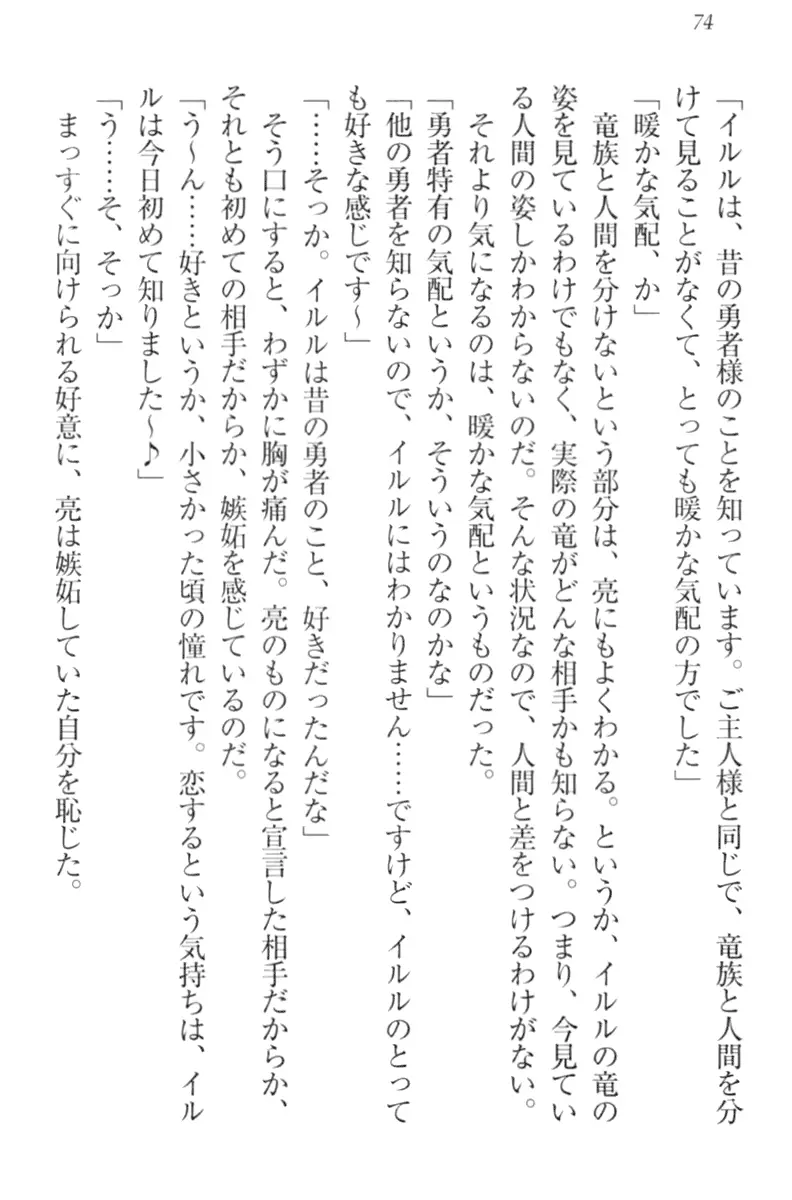 74
「イルルは、昔の勇者様のことを知っています。ご主人様と同じで、竜族と人間を分
けて見ることがなくて、とっても暖かな気配の方でした」
「暖かな気配、か」
　竜族と人間を分けないという部分は、亮にもよくわかる。というか、イルルの竜の
姿を見ているわけでもなく、実際の竜がどんな相手かも知らない。つまり、今見てい
る人間の姿しかわからないのだ。そんな状況なので、人間と差をつけるわけがない。
　それより気になるのは、暖かな気配というものだった。
「勇者特有の気配というか、そういうのなのかな」
「他の勇者を知らないので、イルルにはわかりません……ですけど、イルルのとって
も好きな感じです～」
「……そっか。イルルは昔の勇者のこと、好きだったんだな」
　そう口にすると、わずかに胸が痛んだ。亮のものになると宣言した相手だからか、
それとも初めての相手だからか、嫉妬を感じているのだ。
「う～ん……好きというか、小さかった頃の憧れです。恋するという気持ちは、イル
ルは今日初めて知りました～♪」
「う……そ、そっか」
　まっすぐに向けられる好意に、亮は嫉妬していた自分を恥じた。